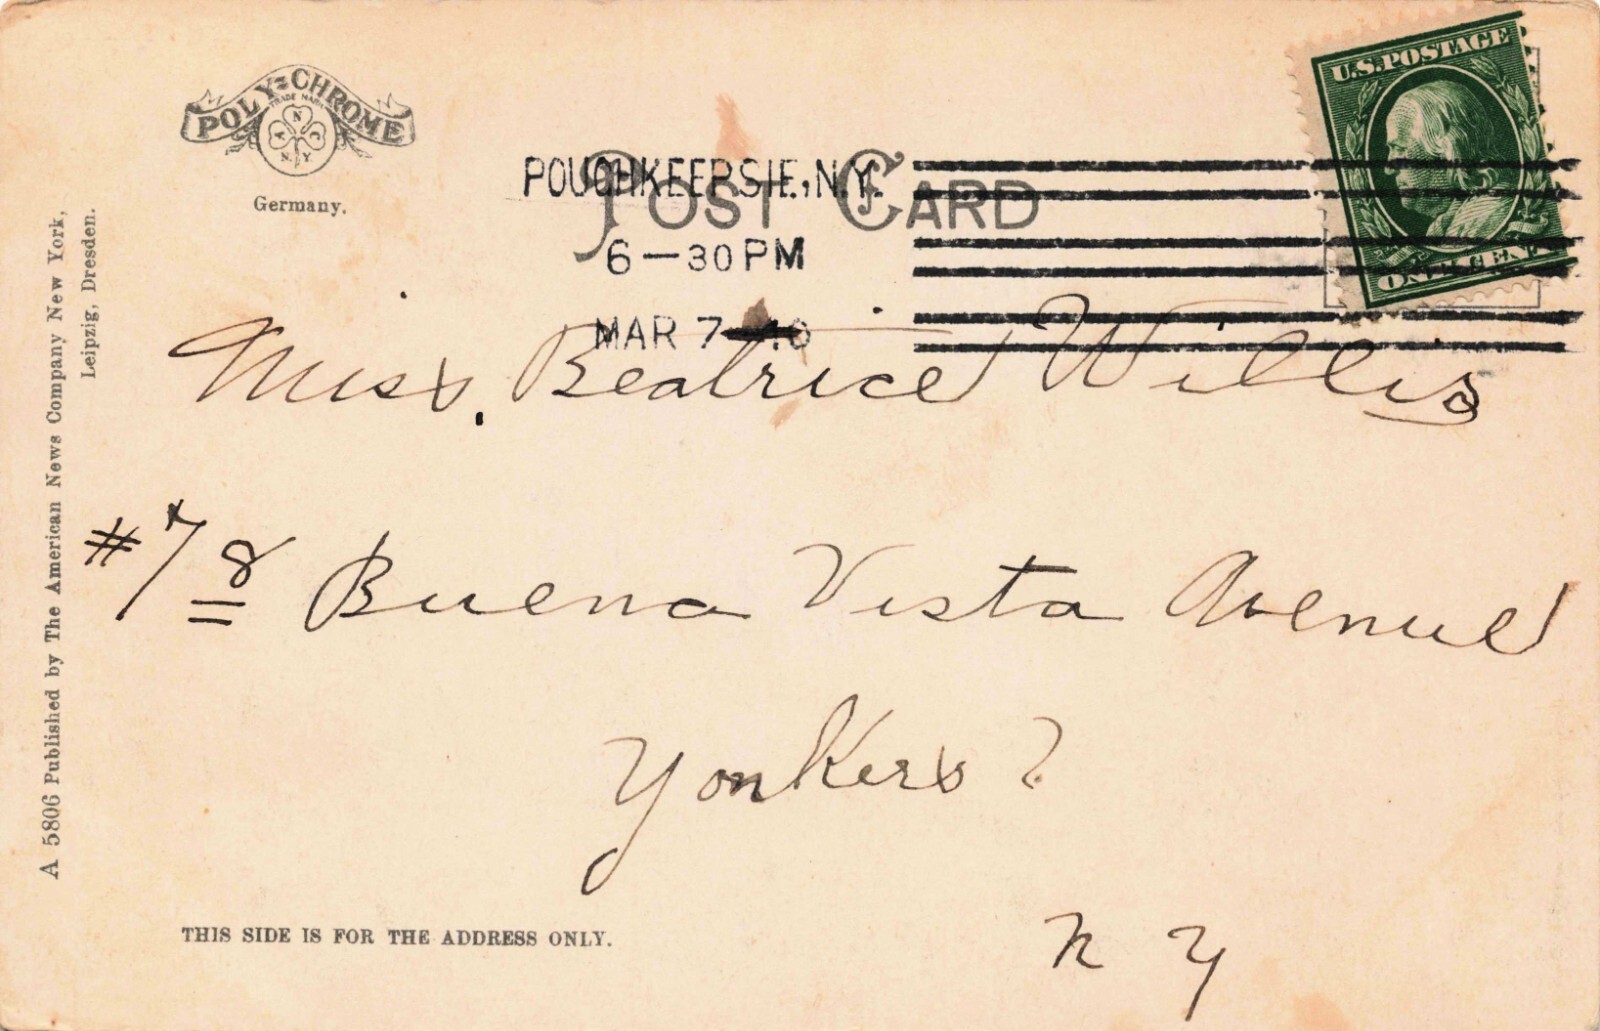 POLY-CHROME
TRADE MARK
A N C
N.Y.
Germany.
POST CARD
POUGHKEEPSIE, N.Y.
6-30 PM
MAR 7 10
U.S. POSTAGE
ONE CENT
Miss. Beatrice Willis
#78 Buena Vista Avenue
Yonkers
N Y
THIS SIDE IS FOR THE ADDRESS ONLY.
A 5806 Published by The American News Company New York,
Leipzig, Dresden.